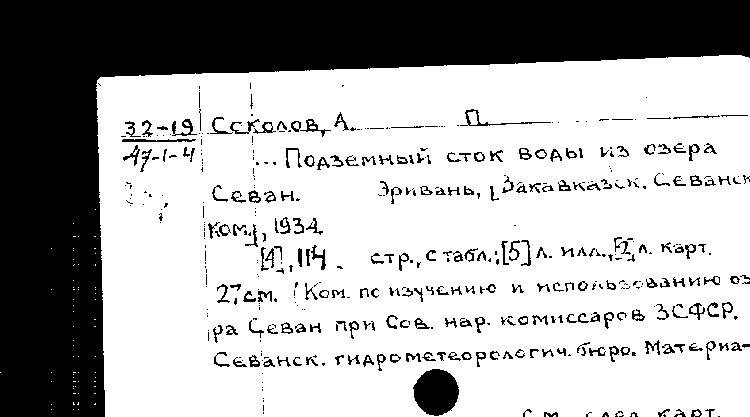 32-19 Соколов, А. П.
47-1-4 ... Подземный сток воды из озера
Севан. Эривань, [Закавказск. Севанск
ком.], 1934.
[4], 114 стр., с табл.; [5] л. илл., [2] л. карт.
27 см. (Ком. по изучению и использованию оз
ра Севан при Сов. нар. комиссаров ЗСФСР.
Севанск. гидрометеорологич. бюро. Материа-
См. след. карт.